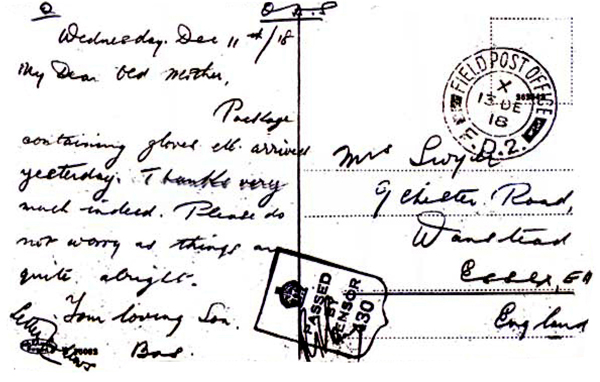 O.A.S
Wednesday. Dec 11th/18
My Dear Old Mother,
Package
containing gloves etc. arrived
yesterday. Thanks very
much indeed. Please do
not worry as things are
quite alright.
Your loving Son.
FIELD POST OFFICE
X
13 DE
18
D.2.
Mrs
9 Chester Road,
Wanstead
Essex, E11
England
PASSED
BY
CENSOR
430